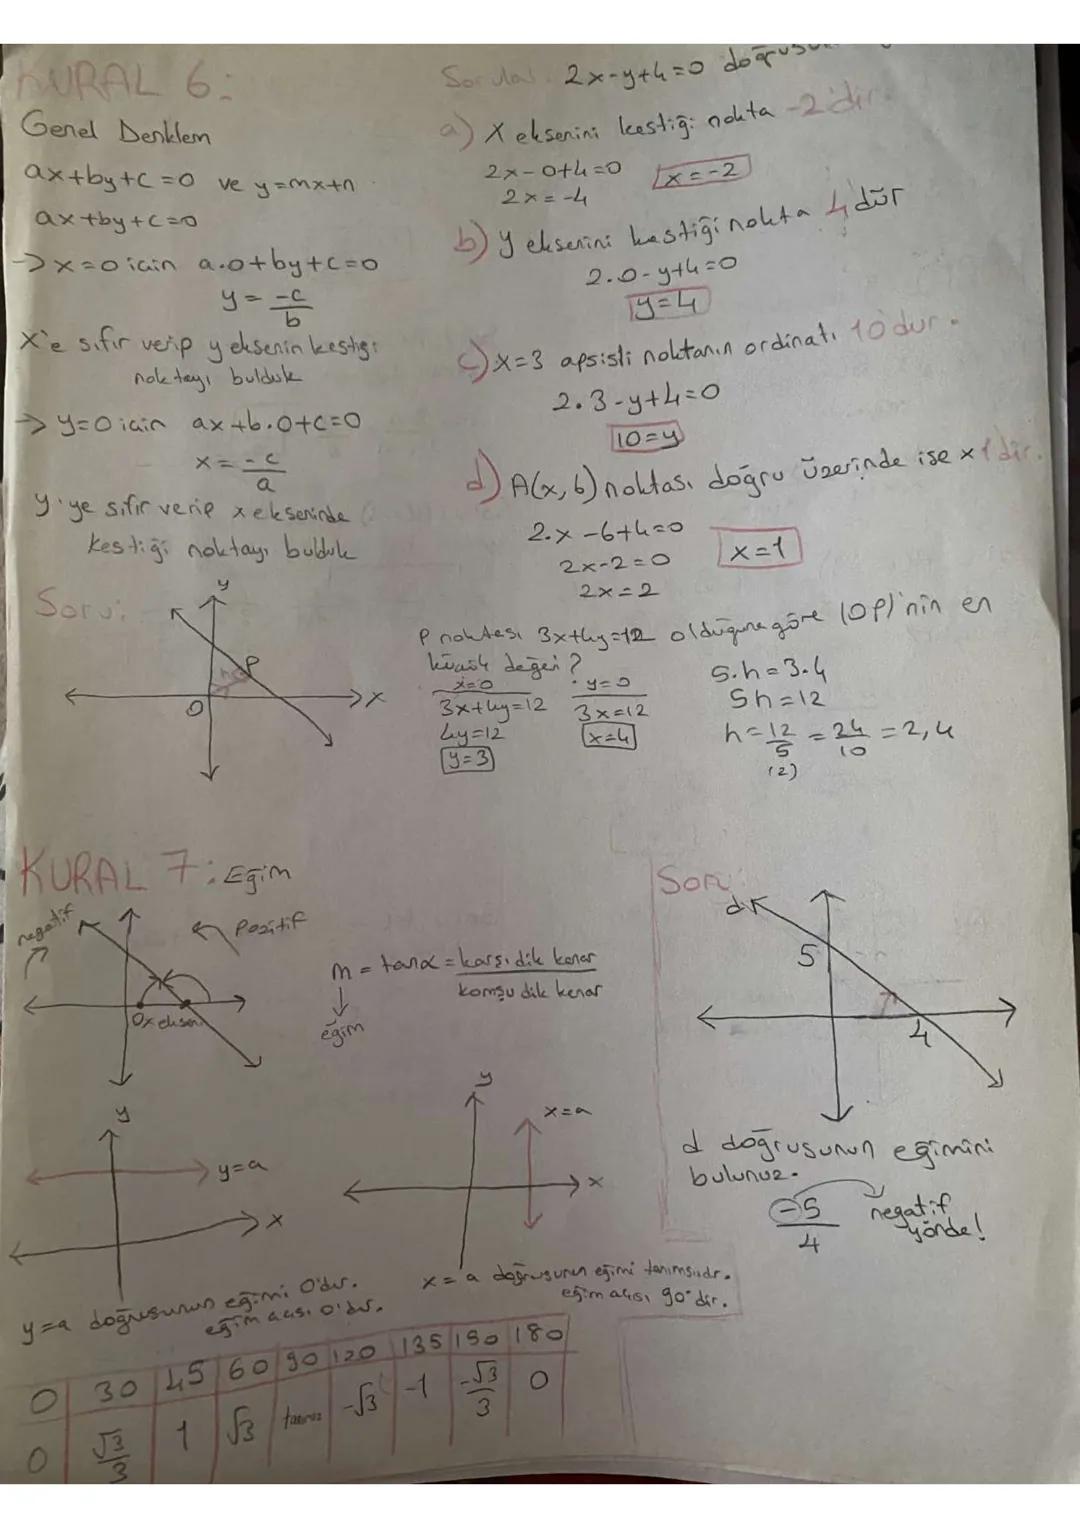 KURAL 6:
Genel Denklem
ax+by+c=0 ve y=mx+n
ax+by+c=0
→ x=0 için a.0+by+c=0
y = -c/b
X'e sıfır verip y eksenin kestiği
noktayı bulduk
→ y=0 için ax+b.0+c=0
x = -c/a
y'ye sıfır verip x ekseninde
kestiği noktayı bulduk
Sorular: 2x-y+4=0
a) X eksenini kestiği nokta -2'dir.
2x-0+4=0
2x=-4
x=-2
b) y eksenini kestiği nokta 4'dür
2.0-y+4=0
y=4
c) x=3 apsisli noktanın ordinatı 10'dur.
2.3-y+4=0
10=y
d) A(x,6) noktası doğru üzerinde ise x 1'dir.
2.x-6+4=0
2x-2=0
2x=2
x=1
Soru:
y
P
h
O
x
P noktası 3x+4y=12 olduğuna göre |OP|'nin en
küçük değeri?
x=0
3x+4y=12
4y=12
y=3
y=0
3x=12
x=4
5.h=3.4
5h=12
h=12/5=24/10=2,4
(2)
KURAL 7: Eğim
negatif
Pozitif
Ox ekseni
m = tanα = karşı dik kenar / komşu dik kenar
eğim
y
y=a
x
y=a doğrusunun eğimi 0'dır.
eğim açısı 0'dır.
y
x=a
x
x=a doğrusunun eğimi tanımsızdır.
eğim açısı 90°dir.
Soru:
d
5
4
d doğrusunun eğimini
bulunuz.
-5/4
negatif
yönde!
0 30 45 60 90 120 135 150 180
0 √3/3 1 √3 tanımsız -√3 -1 -√3/3 0